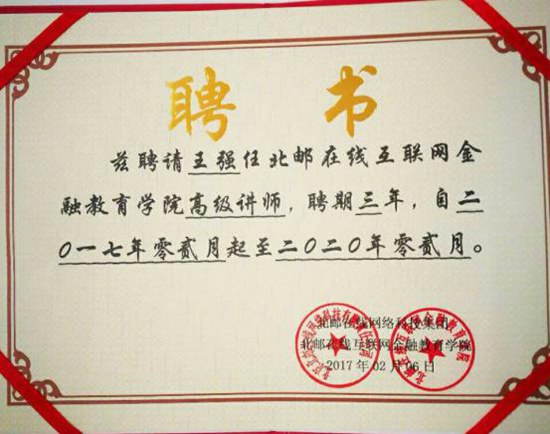 聘书
兹聘请王强任北邮在线互联网金
融教育学院高级讲师，聘期三年，自二
〇一七年零贰月起至二〇二〇年零贰月。
北邮在线网络科技集团
北邮在线互联网金融教育学院
2017年02月06日